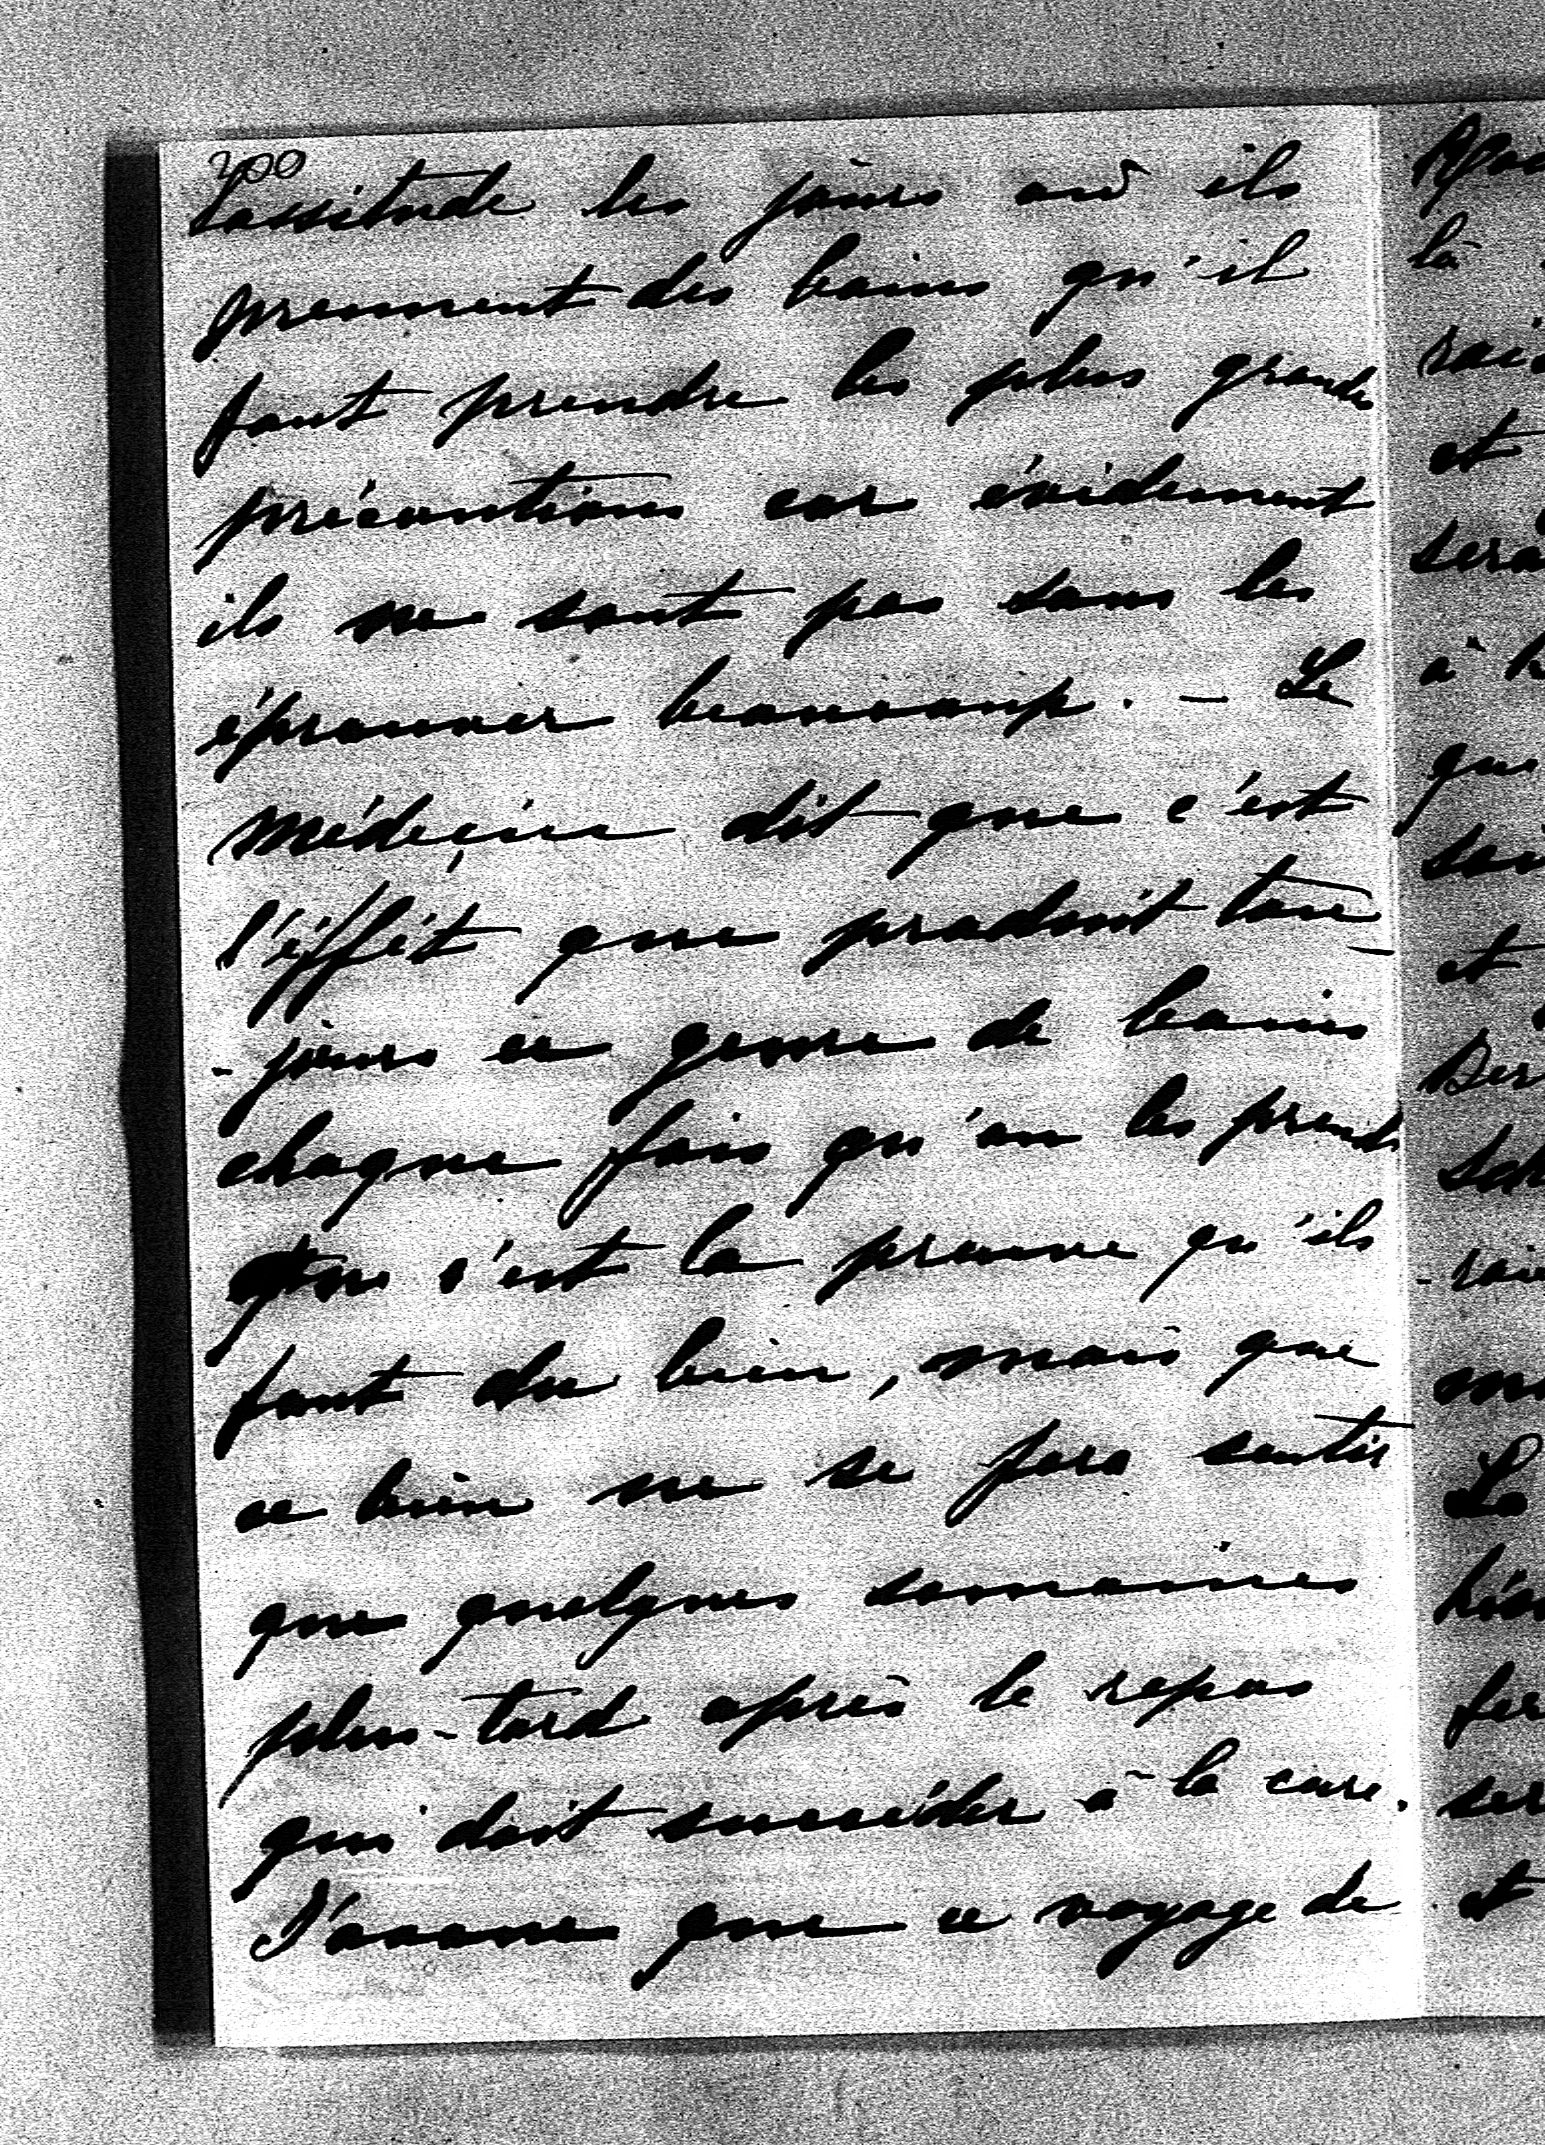 300
Lassitude les jours où ils
prennent des bains qu'il
faut prendre les plus grandes
précautions car évidemment
ils ne sont pas sans les
éprouver beaucoup. — Le
Médecin dit que c'est
l'éffét que produit tou-
-jours ce genre de bains
chaque fois qu'on les prends
que c'est la preuve qu'ils
font du bien, mais que
ce bien ne se fera sentir
que quelques semaines
plus-tard après le repos
qui doit succéder à la cure.
J'avoue que ce voyage de
là
et
à
que
et
et